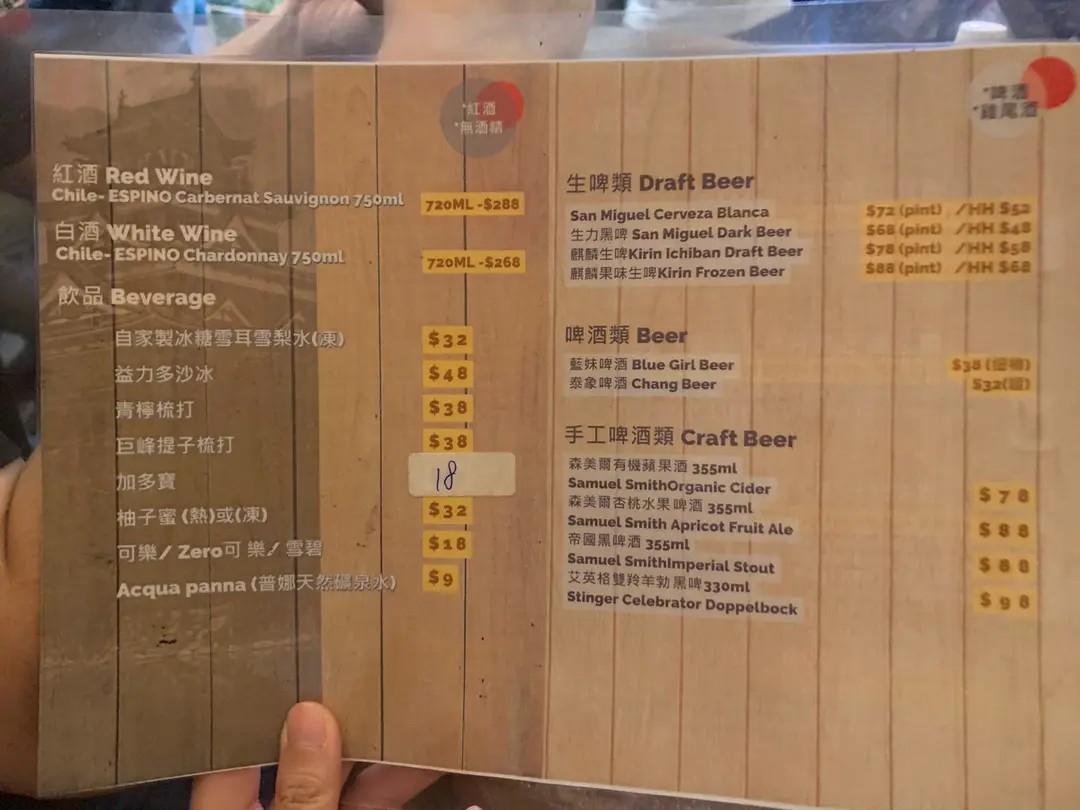 *紅酒
*無酒精
紅酒 Red Wine
Chile- ESPINO Carbernat Sauvignon 750ml 720ML -$288
白酒 White Wine
Chile- ESPINO Chardonnay 750ml 720ML -$268
飲品 Beverage
自家製冰糖雪耳雪梨水(凍) $32
益力多沙冰 $48
青檸梳打 $38
巨峰提子梳打 $38
加多寶 18
柚子蜜 (熱)或(凍) $32
可樂/ Zero可 樂/ 雪碧 $18
Acqua panna (普娜天然礦泉水) $9
*啤酒
*雞尾酒
生啤類 Draft Beer
San Miguel Cerveza Blanca $72 (pint) /HH $52
生力黑啤 San Miguel Dark Beer $68 (pint) /HH $48
麒麟生啤Kirin Ichiban Draft Beer $78 (pint) /HH $58
麒麟果味生啤Kirin Frozen Beer $88 (pint) /HH $68
啤酒類 Beer
藍妹啤酒 Blue Girl Beer $38
泰象啤酒 Chang Beer $32(罐)
手工啤酒類 Craft Beer
森美爾有機蘋果酒 355ml
Samuel SmithOrganic Cider $78
森美爾杏桃水果啤酒 355ml
Samuel Smith Apricot Fruit Ale $88
帝國黑啤酒 355ml
Samuel SmithImperial Stout $88
艾英格雙羚羊勃黑啤330ml
Stinger Celebrator Doppelbock $98